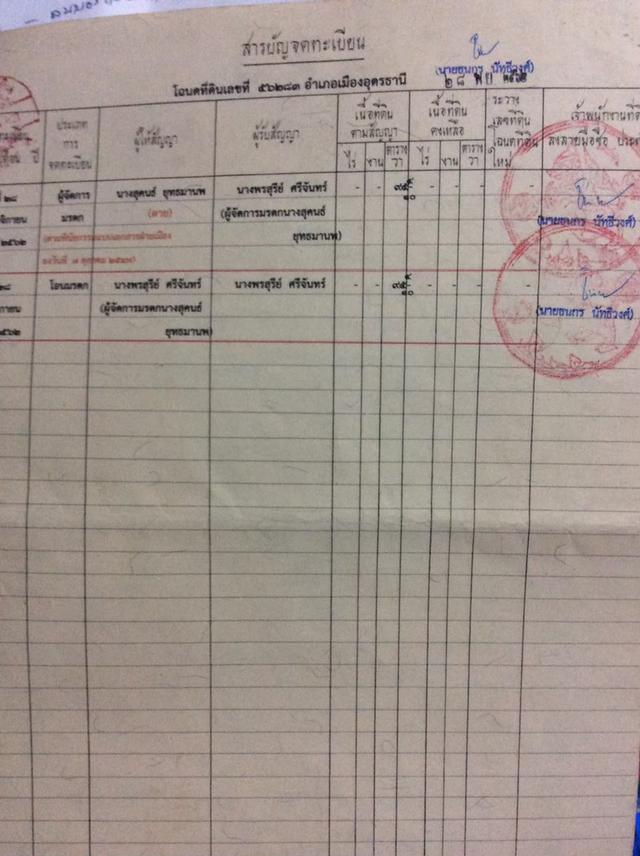 สารบัญจดทะเบียน
(นายธนกร นัทธีวงศ์)
โฉนดที่ดินเลขที่ ๕๖๒๘๓ อำเภอเมืองอุดรธานี ๒๘ พย ๒๕๖๒
ปี
ประเภท
การ
จดทะเบียน
ผู้ให้สัญญา
ผู้รับสัญญา
เนื้อที่ดิน
ตามสัญญา
ไร่ งาน ตาราง
วา
เนื้อที่ดิน
คงเหลือ
ไร่ งาน ตาราง
วา
ระวาง
เลขที่ดิน
โฉนดที่ดิน
ใหม่
เจ้าพนักงานที่ดิน
ลงลายมือชื่อ
๒๘ ผู้จัดการ นางสุคนธ์ ยุทธมานพ นางพรสุรีย์ ศรีจันทร์ - - - - - -
มรดก (ตาย) (ผู้จัดการมรดกนางสุคนธ์ (นายธนกร นัทธีวงศ์)
๒๕๖๒ ยุทธมานพ)
๒๘ โอนมรดก นางพรสุรีย์ ศรีจันทร์ นางพรสุรีย์ ศรีจันทร์ - - - - - -
(ผู้จัดการมรดกนางสุคนธ์ (นายธนกร นัทธีวงศ์)
๒๕๖๒ ยุทธมานพ)